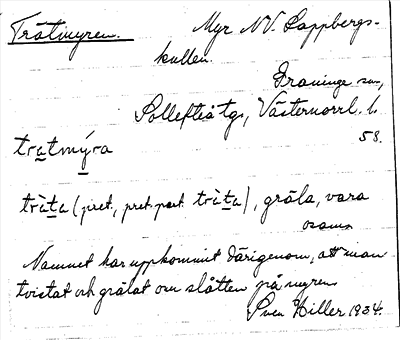 Trätmyren. Myr NV. Lappbergs-
kullen.
Graninge sn,
Sollefteå tgs, Västernorrl. l.
58.
tratmýra
tràta (pret., pret. part. tràta), gräla, vara
osams
Namnet har uppkommit därigenom, att man
tvistat och grälat om slåtten på myren
Sven Hiller 1934.